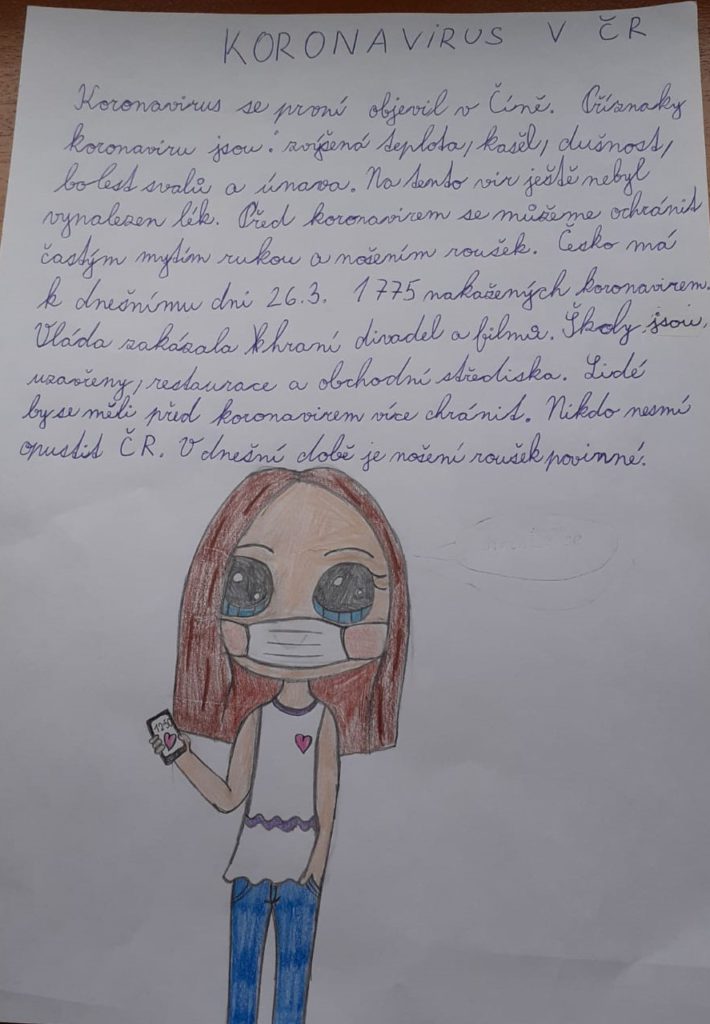 KORONAVIRUS V ČR
Koronavirus se první objevil v Číně. Příznaky
koronaviru jsou: zvýšená teplota, kašel, dušnost,
bolest svalů a únava. Na tento vir ještě nebyl
vynalezen lék. Před koronavirem se můžeme ochránit
častým mytím rukou a nošením roušek. Česko má
k dnešnímu dni 26.3. 1775 nakažených koronavirem.
Vláda zakázala hraní divadel a filmů. Školy jsou
uzavřeny, restaurace a obchodní střediska. Lidé
by se měli před koronavirem více chránit. Nikdo nesmí
opustit ČR. V dnešní době je nošení roušek povinné.